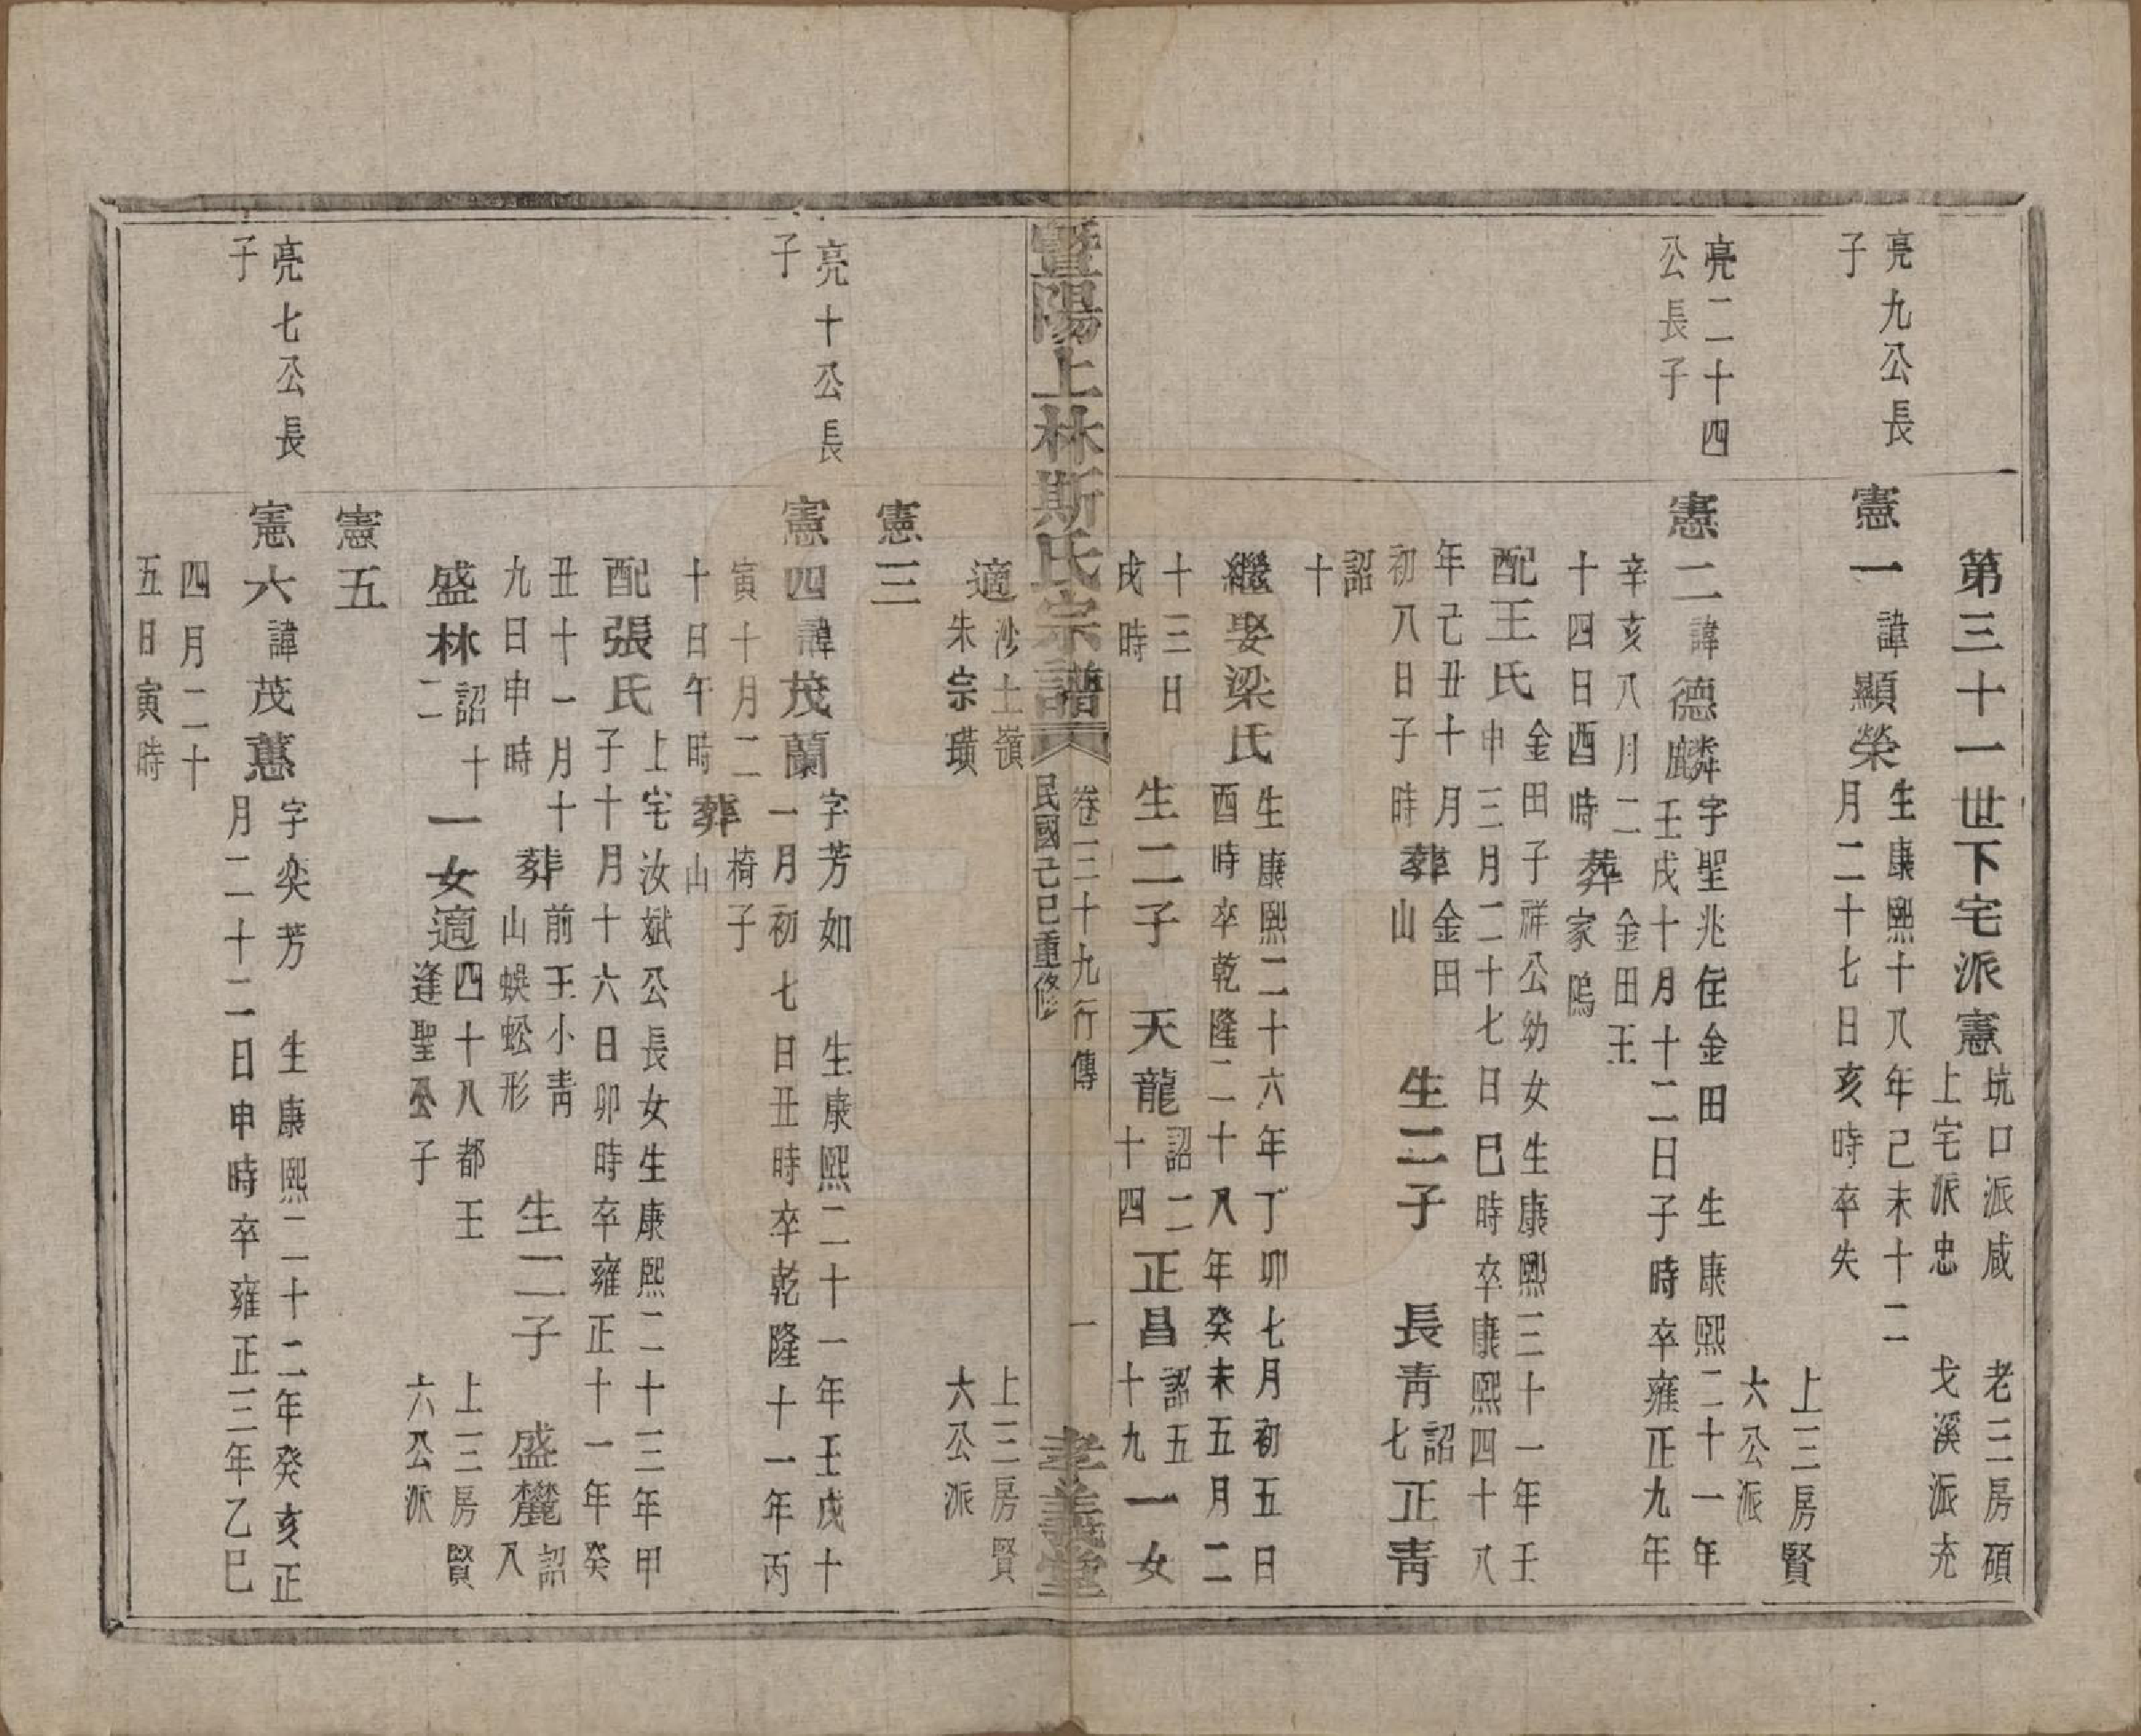 第三十一世下宅派憲
坑口派咸 老三房碩
上宅派忠 戈溪派充
亮九公長
子
憲一諱顯榮
生康熙十八年己未十二
月二十七日亥時卒失
上三房賢
六公派
亮二十四
公長子
憲二諱德麟
字聖兆住金田 生康熙二十一年
壬戌十月十二日子時卒雍正九年
辛亥八月二
十四日酉時
葬
金田王
家塢
配王氏
金田子祥公幼女生康熙三十一年壬
申三月二十七日巳時卒康熙四十八
年己丑十月
初八日子時
葬
金田
山
生二子 長青
詔
七
正青
詔
十
繼娶梁氏
生康熙二十六年丁卯七月初五日
酉時卒乾隆二十八年癸未五月二
十三日
戌時
生二子 天龍
詔二
十四
正昌
詔五
十九
一女
適
沙土嶺
朱宗璜
上三房賢
六公派
暨陽上林斯氏宗譜
卷二三十九行傳 一
民國己巳重修
孝義堂
憲三
亮十公長
子
憲四諱茂蘭
字芳如 生康熙二十一年壬戌十
一月初七日丑時卒乾隆十一年丙
寅十月二
十日午時
葬
椅子
山
配張氏
上宅汝斌公長女生康熙二十三年甲
子十月十六日卯時卒雍正十一年癸
丑十一月十
九日申時
葬
前王小青
山蜈蚣形
生二子 盛麓
詔
八
盛林
詔十
二
一女適
四十八都王
逢聖公子
上三房賢
六公派
憲五
亮七公長
子
憲六諱茂蕙
字奕芳 生康熙二十二年癸亥正
月二十二日申時卒雍正三年乙巳
四月二十
五日寅時